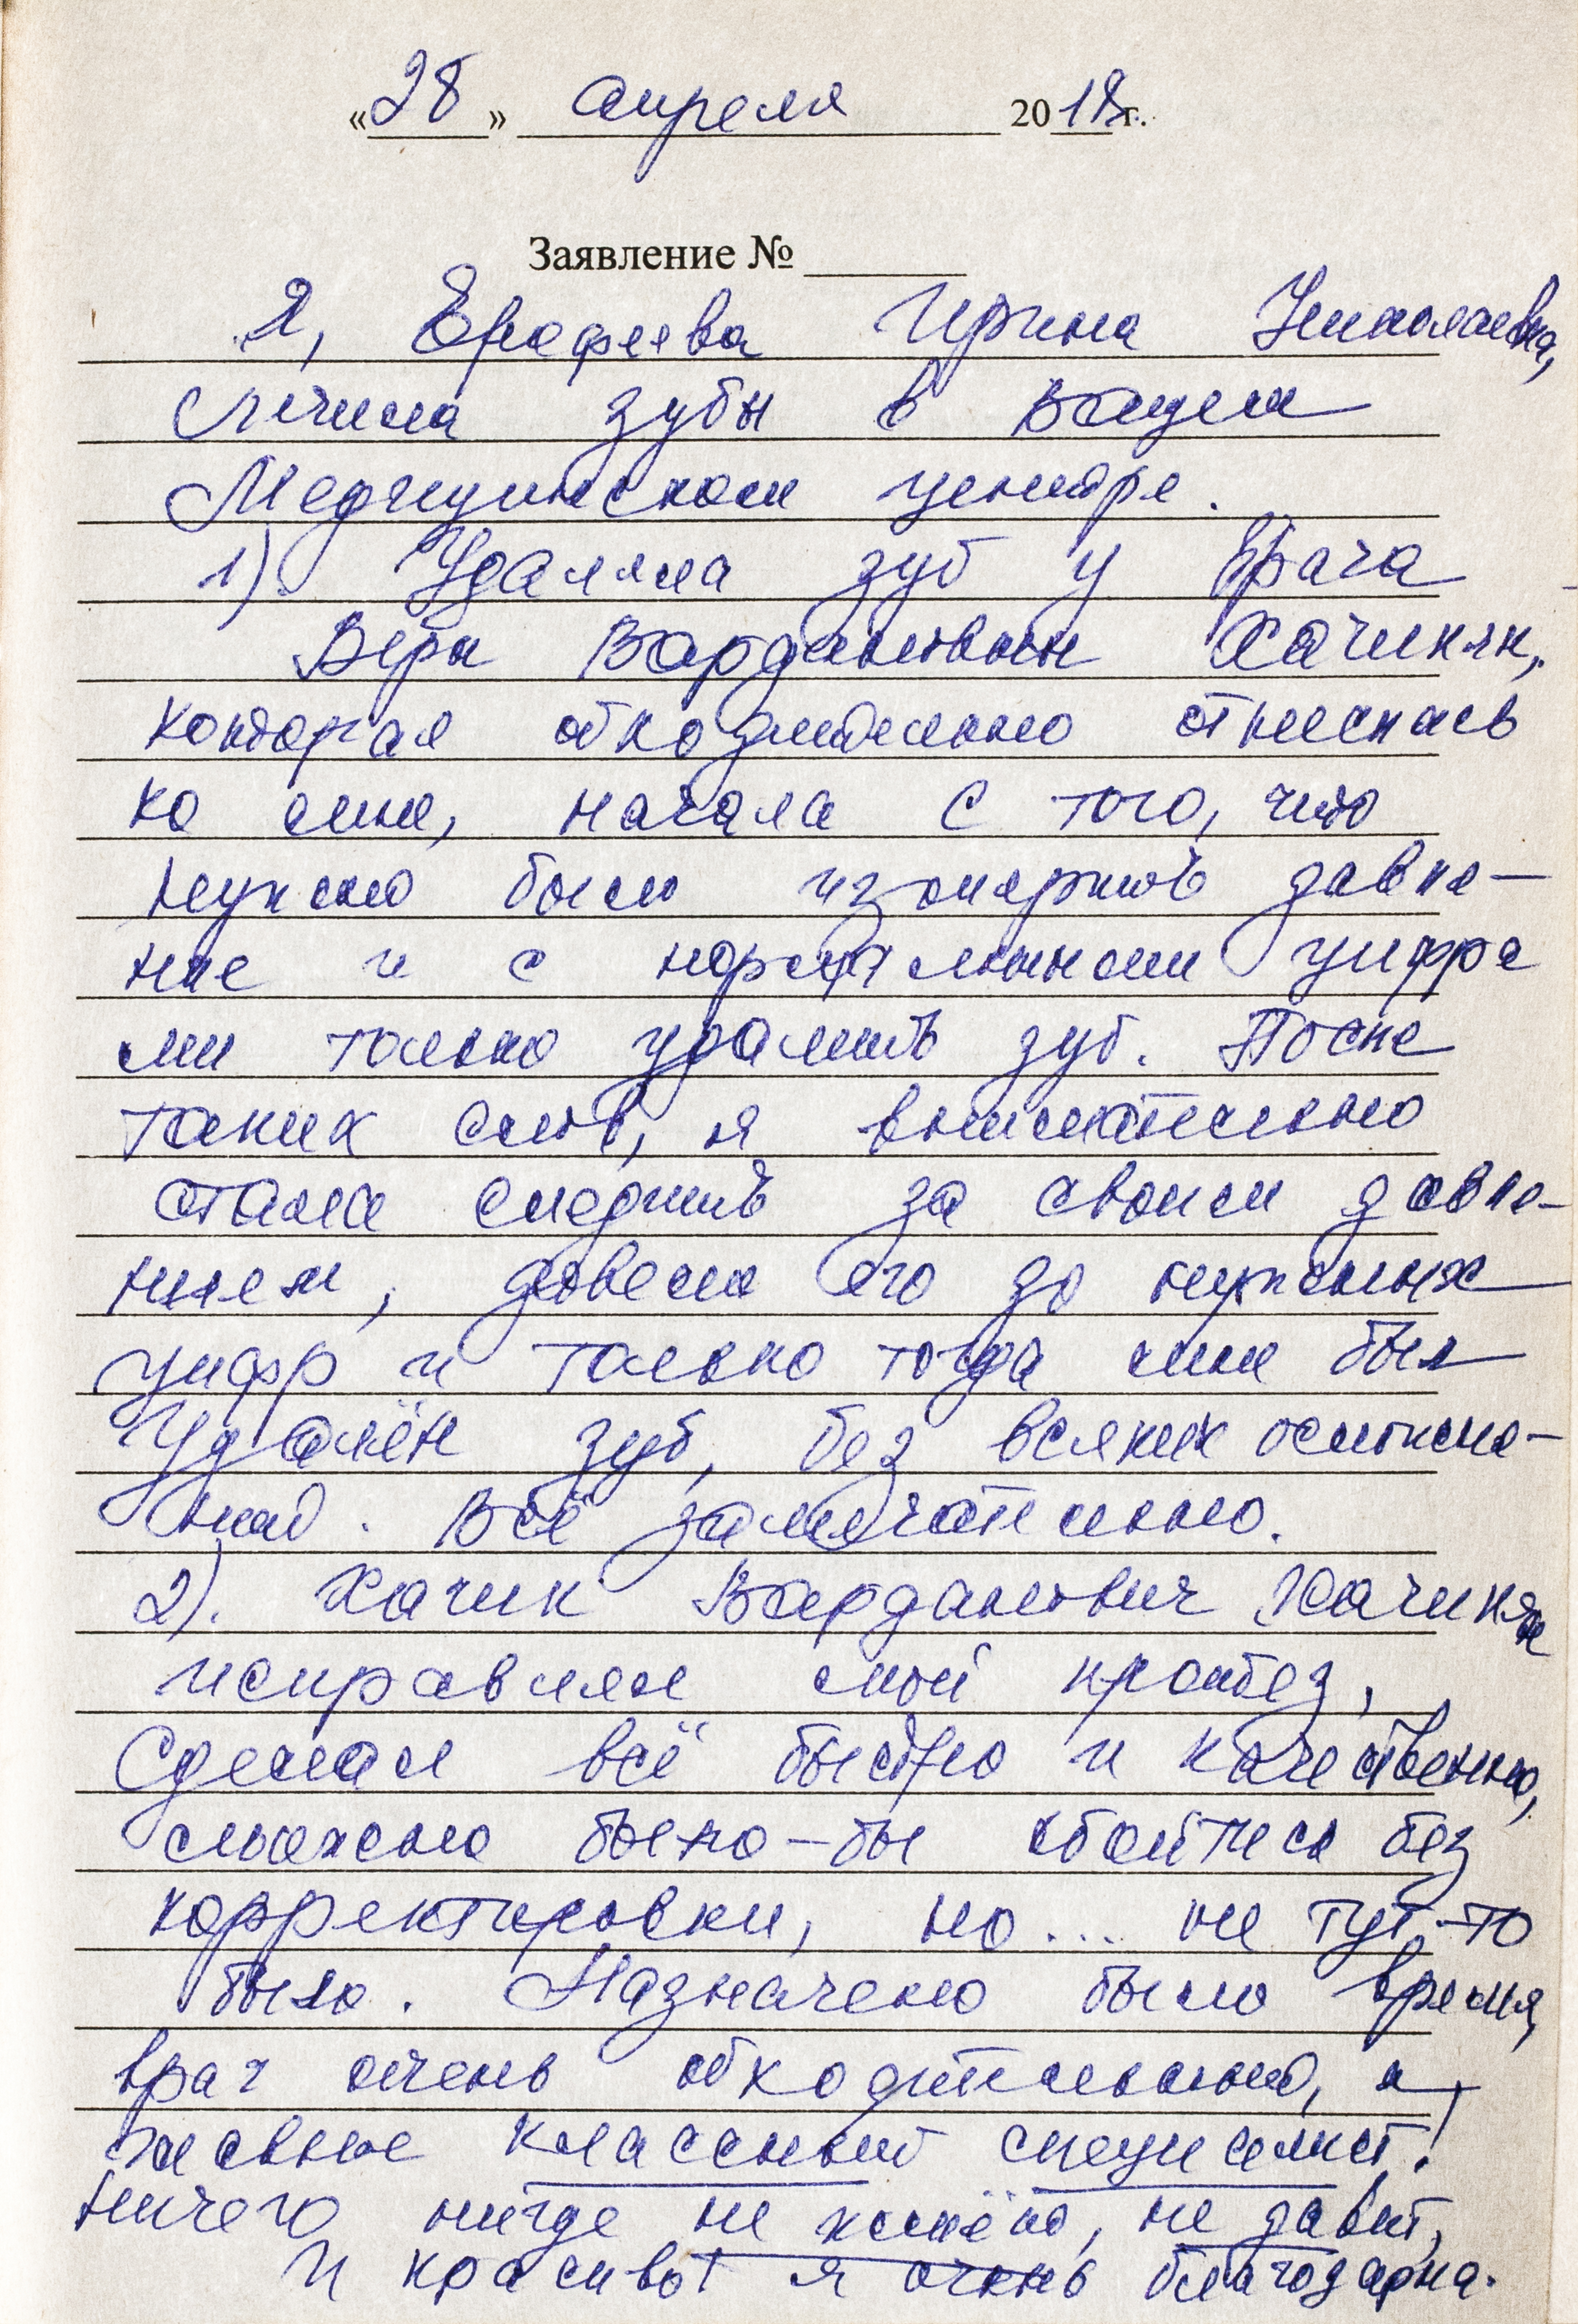 «28» апреля 2018 г.
Заявление №
Я, Ерофеева Ирина Николаевна,
лечила зубы в вашем
Медицинском центре.
1). Удаляла зуб у врача
Веры Вардановны Хачикян,
которая обходительно отнеслась
ко мне, начала с того, что
нужно было измерить давле-
ние и с нормальными цифра
ми только удалить зуб. После
таких слов, я внимательно
стала следить за своим давле-
нием, довела его до нужных
цифр и только тогда мне был
удалён зуб, без всяких осложне-
ний. Всё замечательно.
2). Хачик Варданович Хачикян
исправлял мой протез,
Сделал всё быстро и качественно,
можно было-бы обойтись без
корректировки, но... не тут-то
было. Назначено было время,
врач очень обходительный, а
главное классный специалист!
Ничего нигде не жмёт, не давит,
и красиво! я очень благодарна.